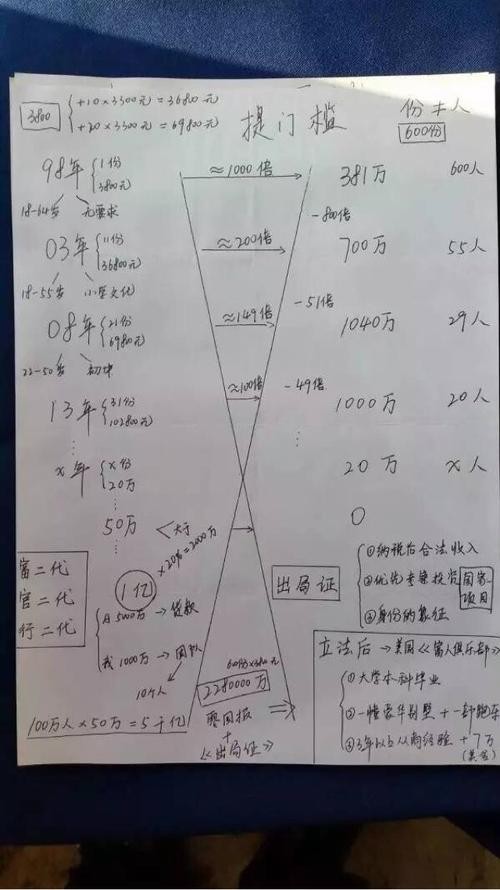 3800 { +10×3300元=36800元
+20×3300元=69800元
提门槛
份≠人
600份
98年 { 1份
3800元
≈1000倍
381万
600人
18-64岁 无要求
-800倍
03年 { 11份
36800元
≈200倍
700万
55人
18-55岁 小学文化
-51倍
08年 { 21份
69800元
≈149倍
1040万
29人
22-50岁 初中
-49倍
13年 { 31份
102800元
≈100倍
1000万
20人
x年 { x份
20万
20万
x人
50万 < 大于
0
×20%=2000万
富二代
官二代
行二代
1亿
月5000万→贷款
我1000万→团队
10个人
出局证
①纳税后合法收入
②优先考察投资
国家
项目
③身份的象征
60份×3800元
2280000万
零回报
+
《出局证》
100万人×50万=5千亿
立法后→美国《富人俱乐部》
①大学本科毕业
②一幢豪华别墅+一部跑车
③3年以上从商经验+7万
(美金)